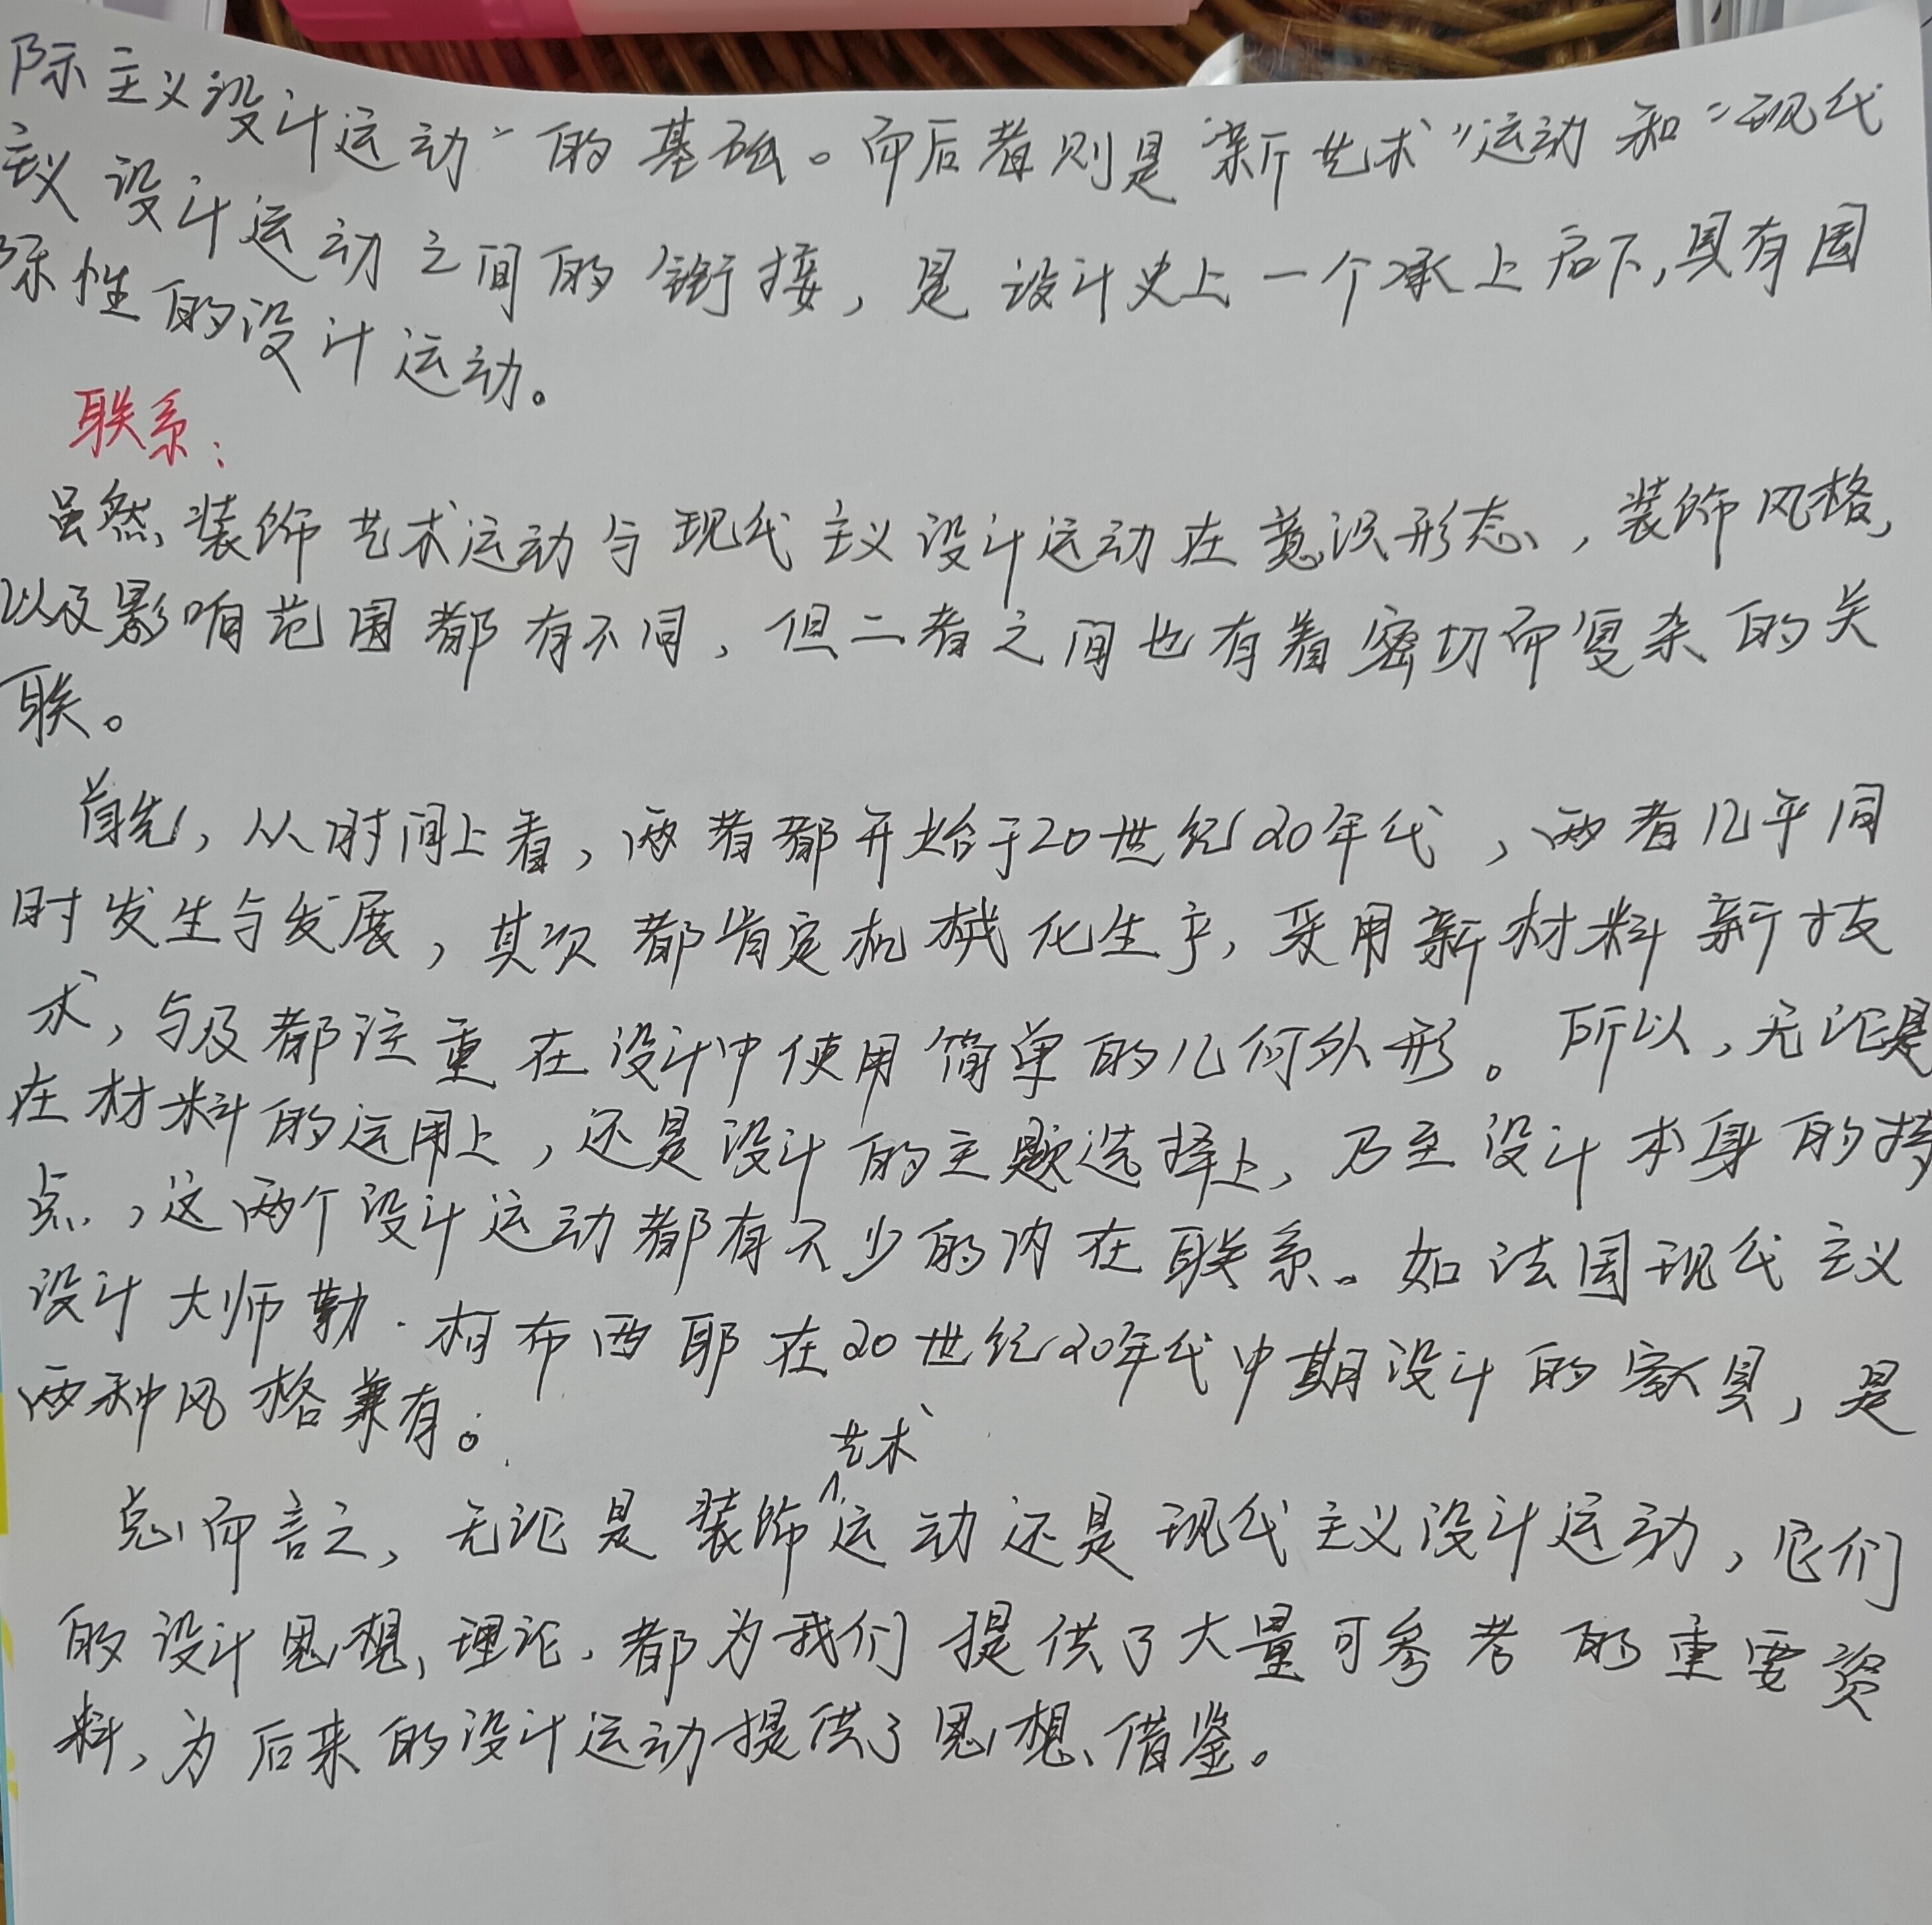 际主义设计运动"的基础。而后者则是"新艺术"运动和"现代
主义设计运动之间的衔接,是设计史上一个承上启下,具有国
际性的设计运动。
联系:
虽然装饰艺术运动与现代主义设计运动在意识形态,装饰风格,
以及影响范围都有不同,但二者之间也有着密切而复杂的关
联。
首先,从时间上看,两者都开始于20世纪20年代,两者几乎同
时发生与发展,其次都肯定机械化生产,采用新材料新技
术,与及都注重在设计中使用简单的几何外形。所以,无论是
在材料的运用上,还是设计的主题选择上,乃至设计本身的特
点,这两个设计运动都有不少的内在联系。如法国现代主义
设计大师勒·柯布西耶在20世纪20年代中期设计的家具,是
两种风格兼有。
总而言之,无论是装饰艺术运动还是现代主义设计运动,它们
的设计思想,理论,都为我们提供了大量可参考的重要资
料,为后来的设计运动提供了思想借鉴。